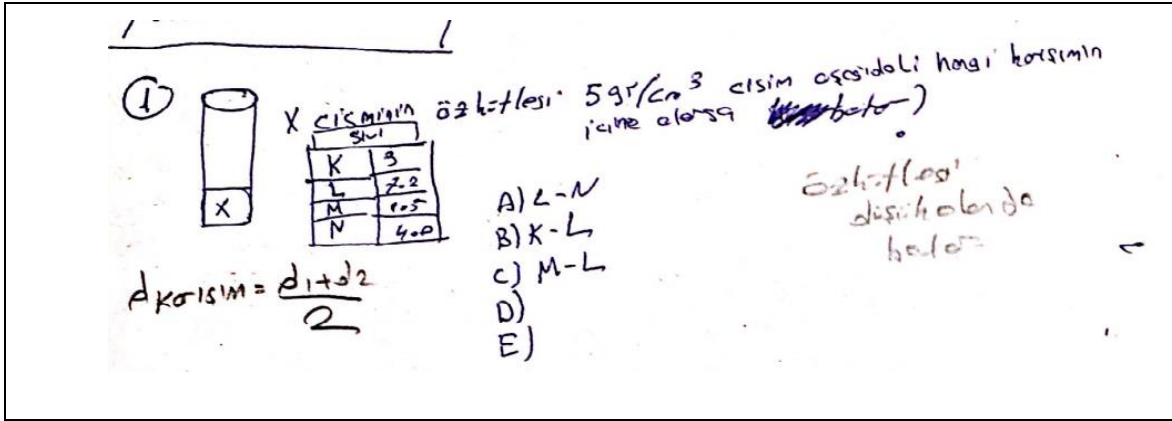 1
X cisminin özkütlesi 5 gr/cm³ cisim aşağıdaki hangi karışımın
içine alırsa batar)
sıvı
K
L 7.2
M 0.5
N 4.0
X
A) L-N
B) K-L
C) M-L
D)
E)
özkütlesi
düşük olanda
batar
d karışım = d1+d2
2